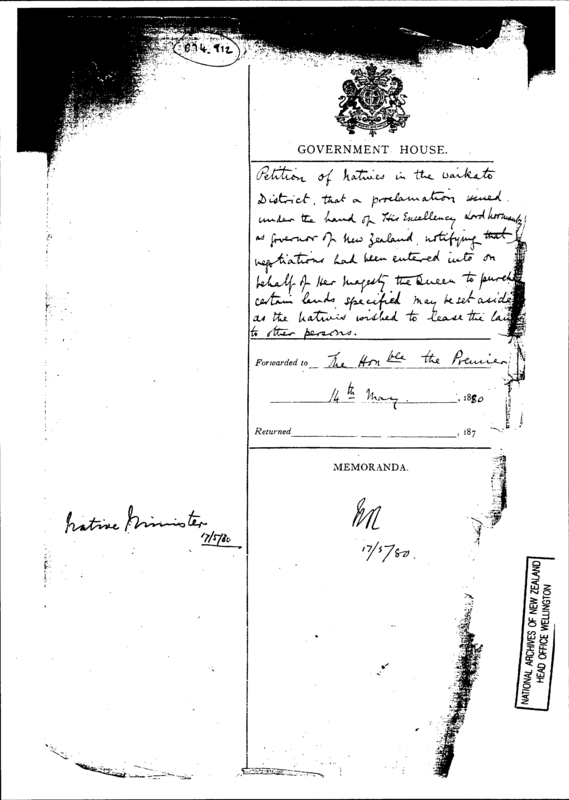 874.912
GOVERNMENT HOUSE.
Petition of Natives in the Waikato
District, that a proclamation issued
under the hand of His Excellency Lord Normanby
as Governor of New Zealand, notifying that
negotiations had been entered into on
behalf of Her Majesty the Queen to purch
certain lands specified may be set aside
as the Natives wished to lease the lan
to other persons.
Forwarded to The Honble the Premier
14th May, 1880
Returned , 187
MEMORANDA.
Native Minister
17/5/80
17/5/80.
NATIONAL ARCHIVES OF NEW ZEALAND
HEAD OFFICE WELLINGTON